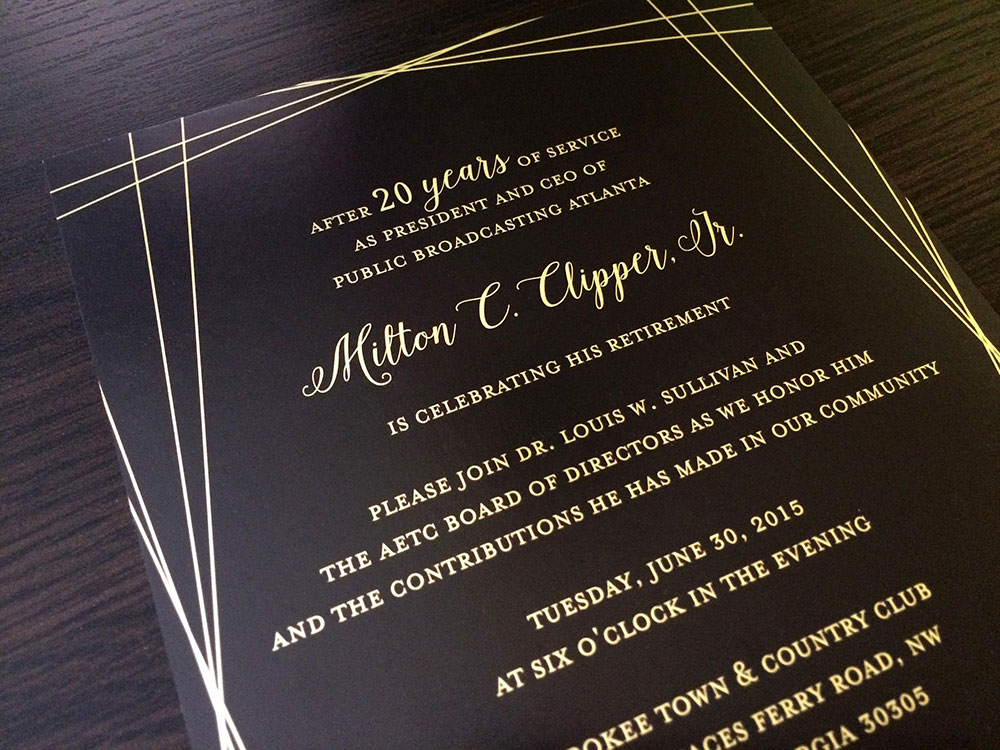 AFTER 20 years OF SERVICE
AS PRESIDENT AND CEO OF
PUBLIC BROADCASTING ATLANTA
Milton C. Clipper, Jr.
IS CELEBRATING HIS RETIREMENT
PLEASE JOIN DR. LOUIS W. SULLIVAN AND
THE AETC BOARD OF DIRECTORS AS WE HONOR HIM
AND THE CONTRIBUTIONS HE HAS MADE IN OUR COMMUNITY
TUESDAY, JUNE 30, 2015
AT SIX O'CLOCK IN THE EVENING
TOWN & COUNTRY CLUB
FERRY ROAD, NW
30305